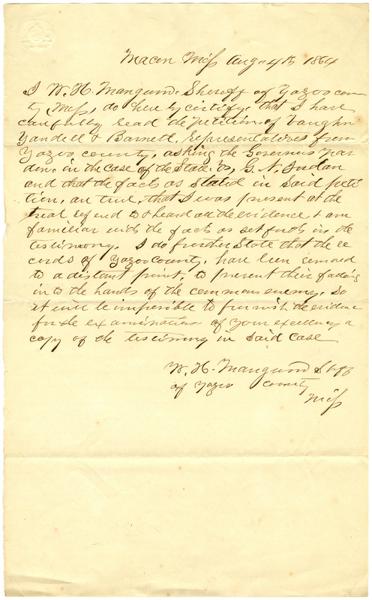 Macon Miss Aug 4th 1864
I W. H. Mangum Shereff of Yazoo coun
ty Miss, do here by certify that I have
carefully read the petition of Vaughn
Yandell & Barnett, representatives from
Yazoo county, asking the Governors par
don, in the case of the State vs, G. N.
and that the facts as stated in said peti
tion, are true, that I was present at the
trial refered to & heard all the evidence & am
familiar with the facts as set forth in the
testimony. I do further State that the re
cords of Yazoo County, have been removed
to a distant point, to prevent their falling
in to the hands of the common enemy, So
it will be impossible to furnish the evidence
for the examination of your excellency a
copy of the testimony in Said Case
W. H. Mangum Shff
of Yazoo County
Miss